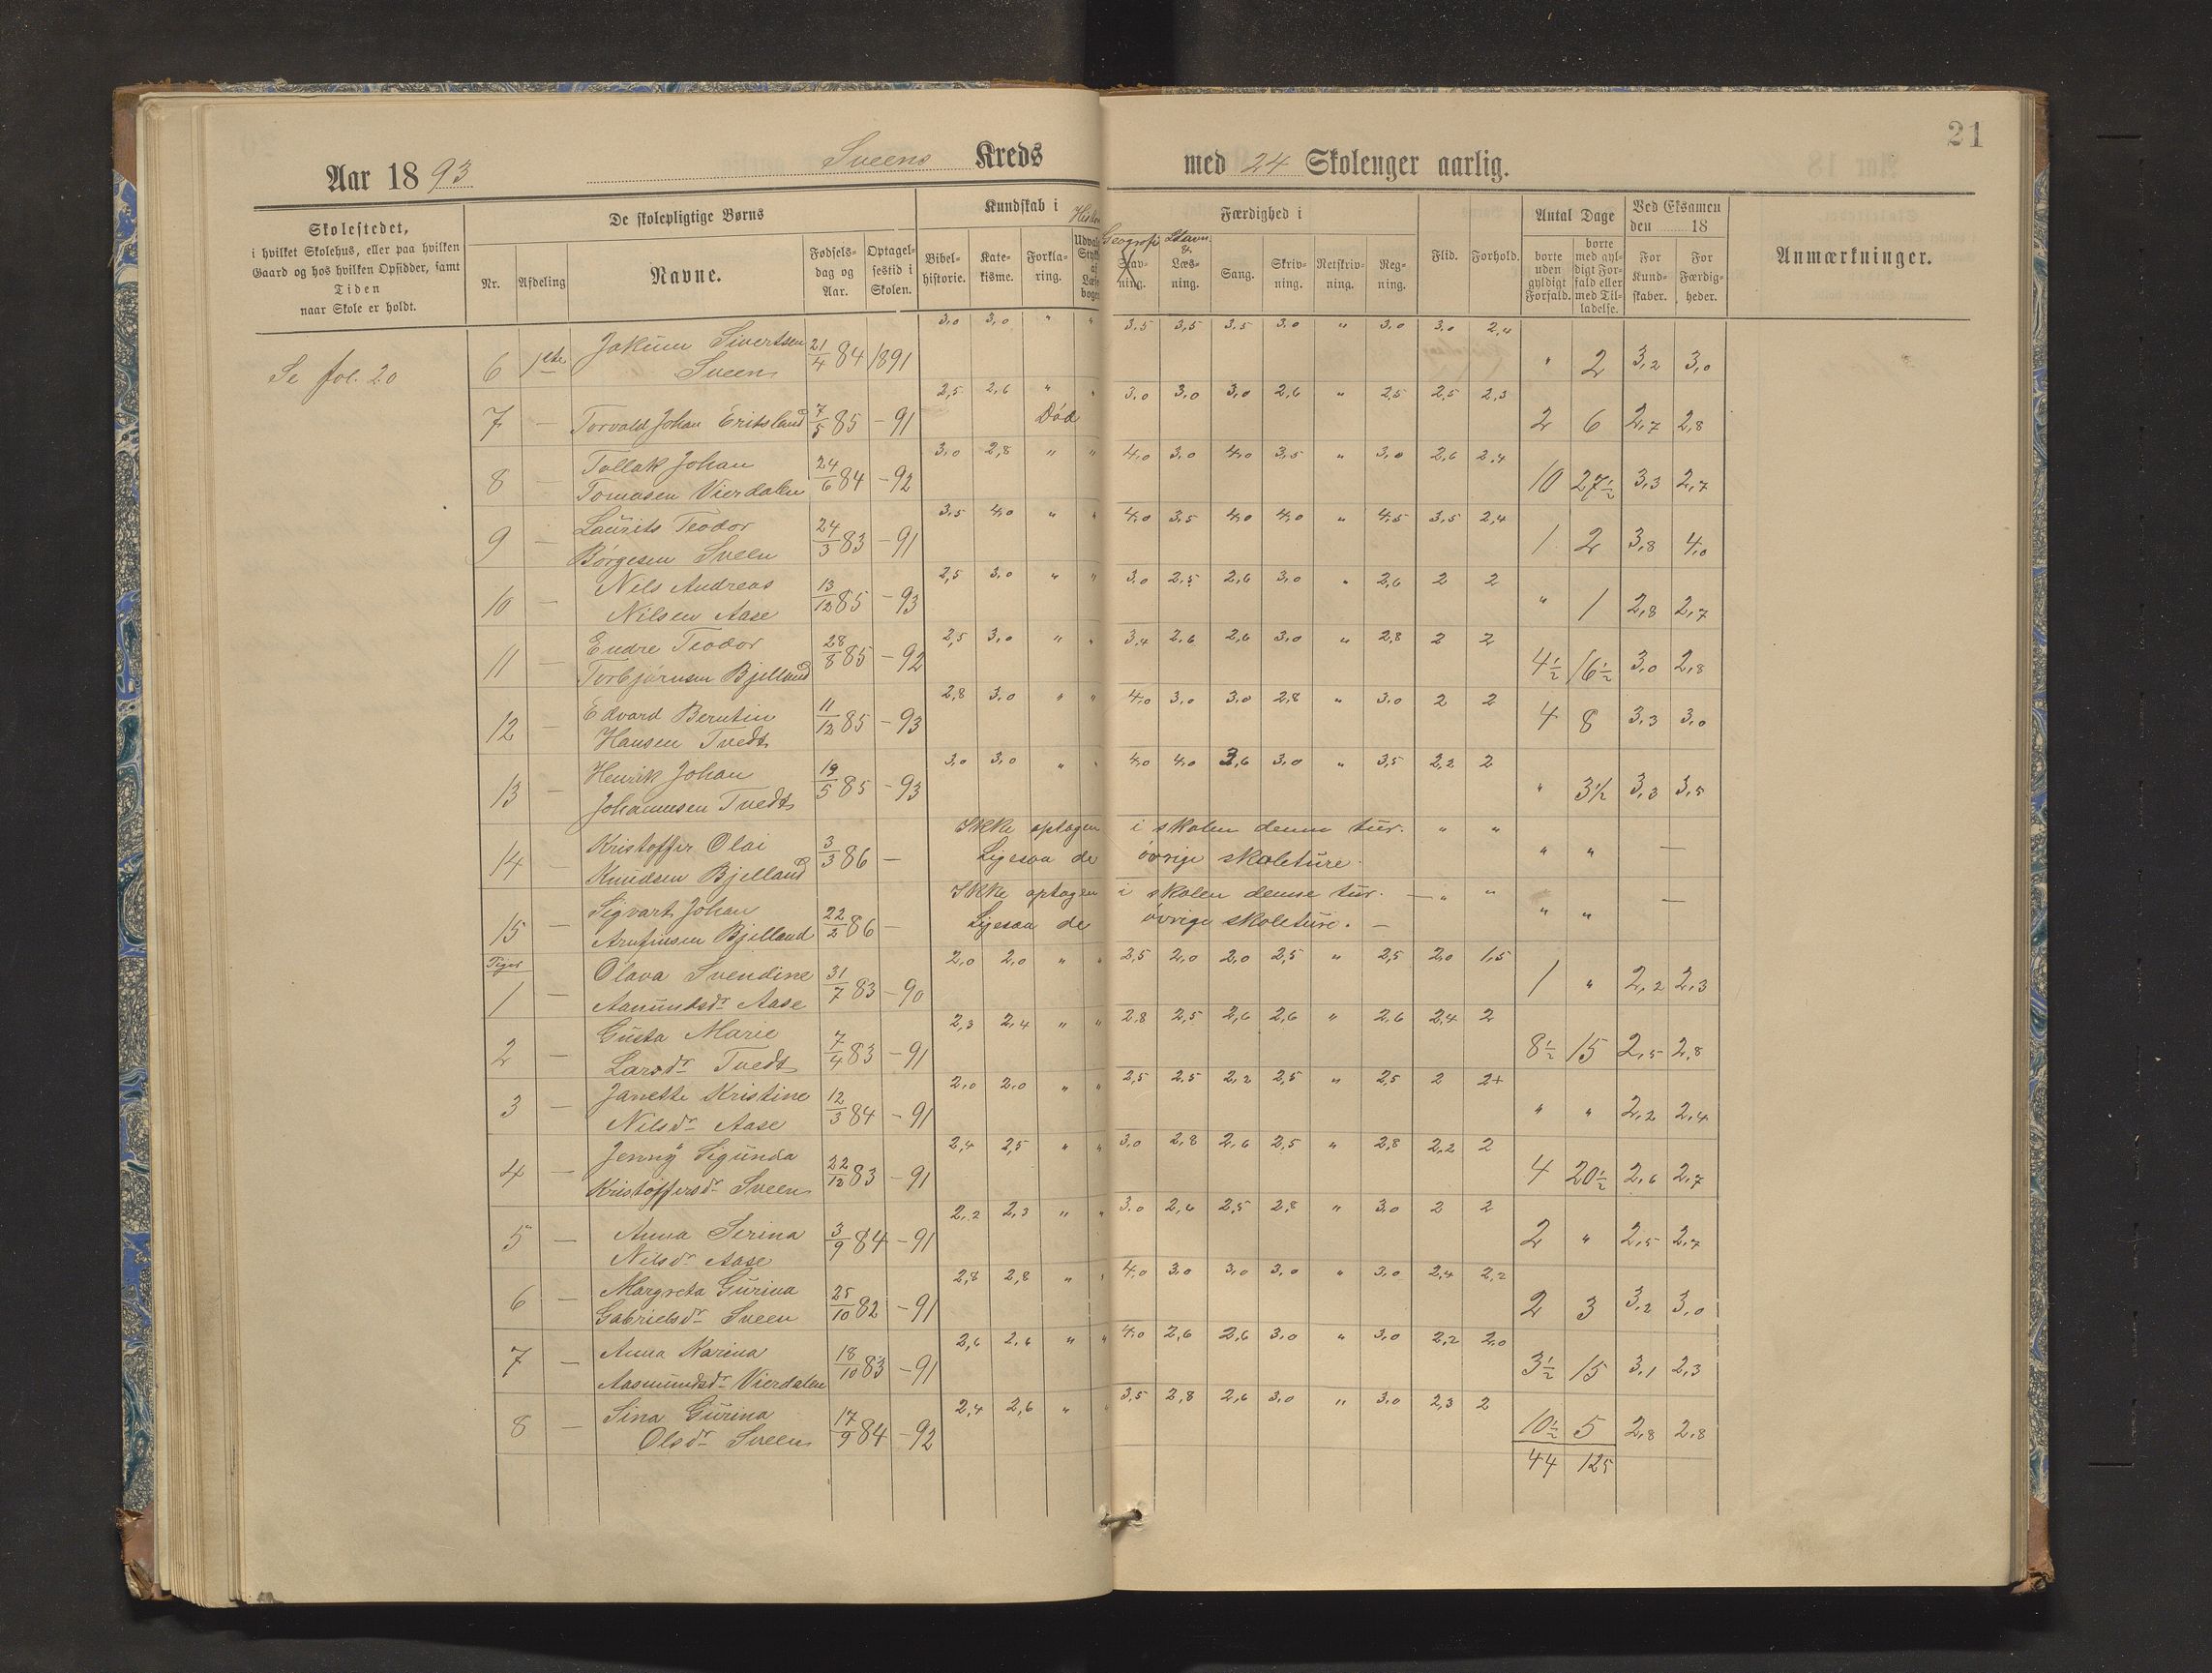 21
Aar 1893 Sveens Kreds med 24 Skolenger aarlig.
Skolestedet,
i hvilket Skolehus, eller paa hvilken
Gaard og hos hvilken Opsidder, samt
Tiden
naar Skole er holdt.
De skolepligtige Børns
Nr. Afdeling Navne. Fødsels-dag og Aar. Optagel-sestid i Skolen.
Kundskab i
Bibel-historie. Kate-kisme. Forkla-ring. Udvalg Stykk af Læse bogen
Færdighed i
Geografi Stavn. &
Stav-ning. Læs-ning. Sang. Skriv-ning. Retskriv-ning. Reg-ning.
Flid. Forhold.
Antal Dage
borte uden gyldigt Forfald. borte med gyl-digt For-fald eller med Til-ladelse.
Ved Eksamen den 18
For Kund-skaber. For Færdig-heder.
Anmærkninger.
Se fol. 20
6 1ste Jakum Sivertsen Sveen 21/4 84 1891 3,0 3,0 " " 3,5 3,5 3,5 3,0 " 3,0 3,0 2,4 " 2 3,2 3,0
7 — Torvald Johan Eritsland 7/5 85 – 91 2,5 2,6 " " 3,0 3,0 3,0 2,6 " 2,5 2,5 2,3 2 6 2,7 2,8
Död
8 — Tollak Johan Tomasen Vierdalen 24/6 84 – 92 3,0 2,8 " " 4,0 3,0 4,0 3,5 " 3,0 2,6 2,4 10 27½ 3,3 2,7
9 — Laurits Teodor Børgesen Sveen 24/3 83 – 91 3,5 4,0 " " 4,0 3,5 4,0 4,0 " 4,5 3,5 2,4 1 2 3,8 4,0
10 — Nils Andreas Nilsen Aase 13/12 85 – 93 2,5 3,0 " " 3,0 2,5 2,6 3,0 " 2,6 2 2 " 1 2,8 2,7
11 — Endre Teodor Torbjørnsen Bjelland 28/8 85 – 92 2,5 3,0 " " 3,4 2,6 2,6 3,0 " 2,8 2 2 4½ 16½ 3,0 2,8
12 — Edvard Berntin Hansen Tvedt 11/12 85 – 93 2,8 3,0 " " 4,0 3,0 3,0 2,8 " 3,0 2 2 4 8 3,3 3,0
13 — Henrik Johan Johannesen Tvedt 19/5 85 – 93 3,0 3,0 " " 4,0 4,0 3,6 3,0 " 3,5 2,2 2 " 3½ 3,3 3,5
14 — Kristoffer Olai Knudsen Bjelland 3/3 86 — Ikke optagen i skolen denne tur. " " " " —
Ligesaa de övrige skoleture.
15 — Sigvart Johan Arntinsen Bjelland 22/2 86 — Ikke optagen i skolen denne tur. — " " " " —
Ligesaa de övrige skoleture. —
Piger
1 — Olava Svendine Aanundsdr Aase 31/7 83 – 90 2,0 2,0 " " 2,5 2,0 2,0 2,5 " 2,5 2,0 1,5 1 " 2,2 2,3
2 — Gusta Marie Larsdr Tvedt 7/4 83 – 91 2,3 2,4 " " 2,8 2,5 2,6 2,6 " 2,6 2,4 2 8½ 15 2,5 2,8
3 — Janette Kristine Nilsdr Aase 12/3 84 – 91 2,0 2,0 " " 2,5 2,5 2,2 2,5 " 2,5 2 2+ " " 2,2 2,4
4 — Jenny Sigunda Kristoffersdr Sveen 22/12 83 – 91 2,4 2,5 " " 3,0 2,8 2,6 2,5 " 2,8 2,2 2 4 20½ 2,6 2,7
5 — Anna Serina Nilsdr Aase 3/9 84 – 91 2,2 2,3 " " 3,0 2,6 2,5 2,8 " 3,0 2 2 2 " 2,5 2,7
6 — Margreta Gurina Gabrielsdr Sveen 25/10 82 – 91 2,8 2,8 " " 4,0 3,0 3,0 3,0 " 3,0 2,4 2,2 2 3 3,2 3,0
7 — Anna Karina Aasmundsdr Vierdalen 18/10 83 – 91 2,6 2,6 " " 4,0 2,6 2,6 3,0 " 3,0 2,2 2,0 3½ 15 3,1 2,3
8 — Sina Gurina Olsdr Sveen 17/9 84 – 92 2,4 2,6 " " 3,5 2,8 2,6 3,0 " 3,0 2,3 2 10½ 5 2,8 2,8
44 125